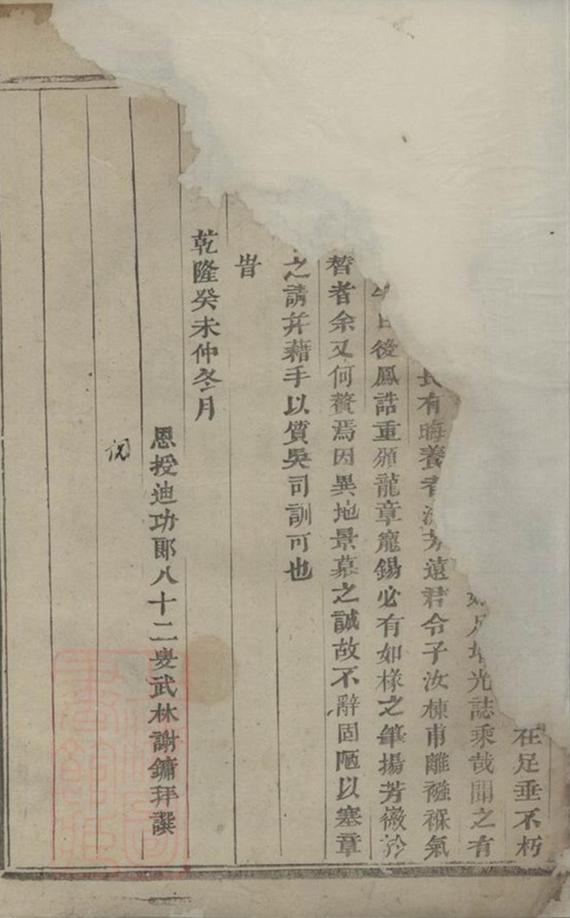 在足垂不朽
光誌乘哉聞之有
長有晦養者流芳遠君令子汝棟甫離襁褓氣
日後鳳誥重頒龍章寵錫必有如椽之筆揚芳徽於
者余又何贅焉因異地景慕之誠故不辭固陋以塞章
之請幷藉手以質吳司訓可也
旹
乾隆癸未仲冬月
恩授迪功郎八十二叟武林謝鏞拜譔